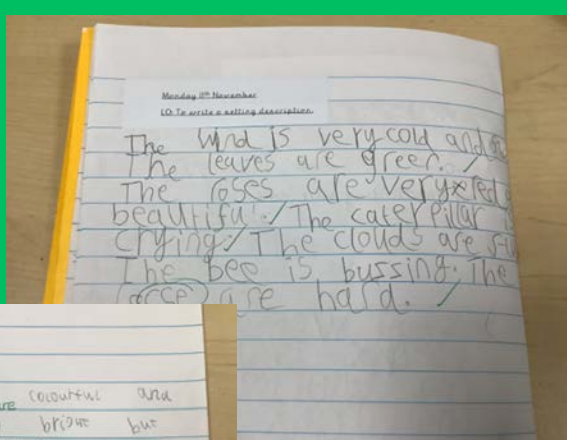 Monday 11th November
LO: To write a setting description.
The wind is very cold and
The leaves are green.
The roses are very red
beautiful. The caterpillar
crying. The clouds are
The bee is bussing. The
are hard.
are colourful and
bright but